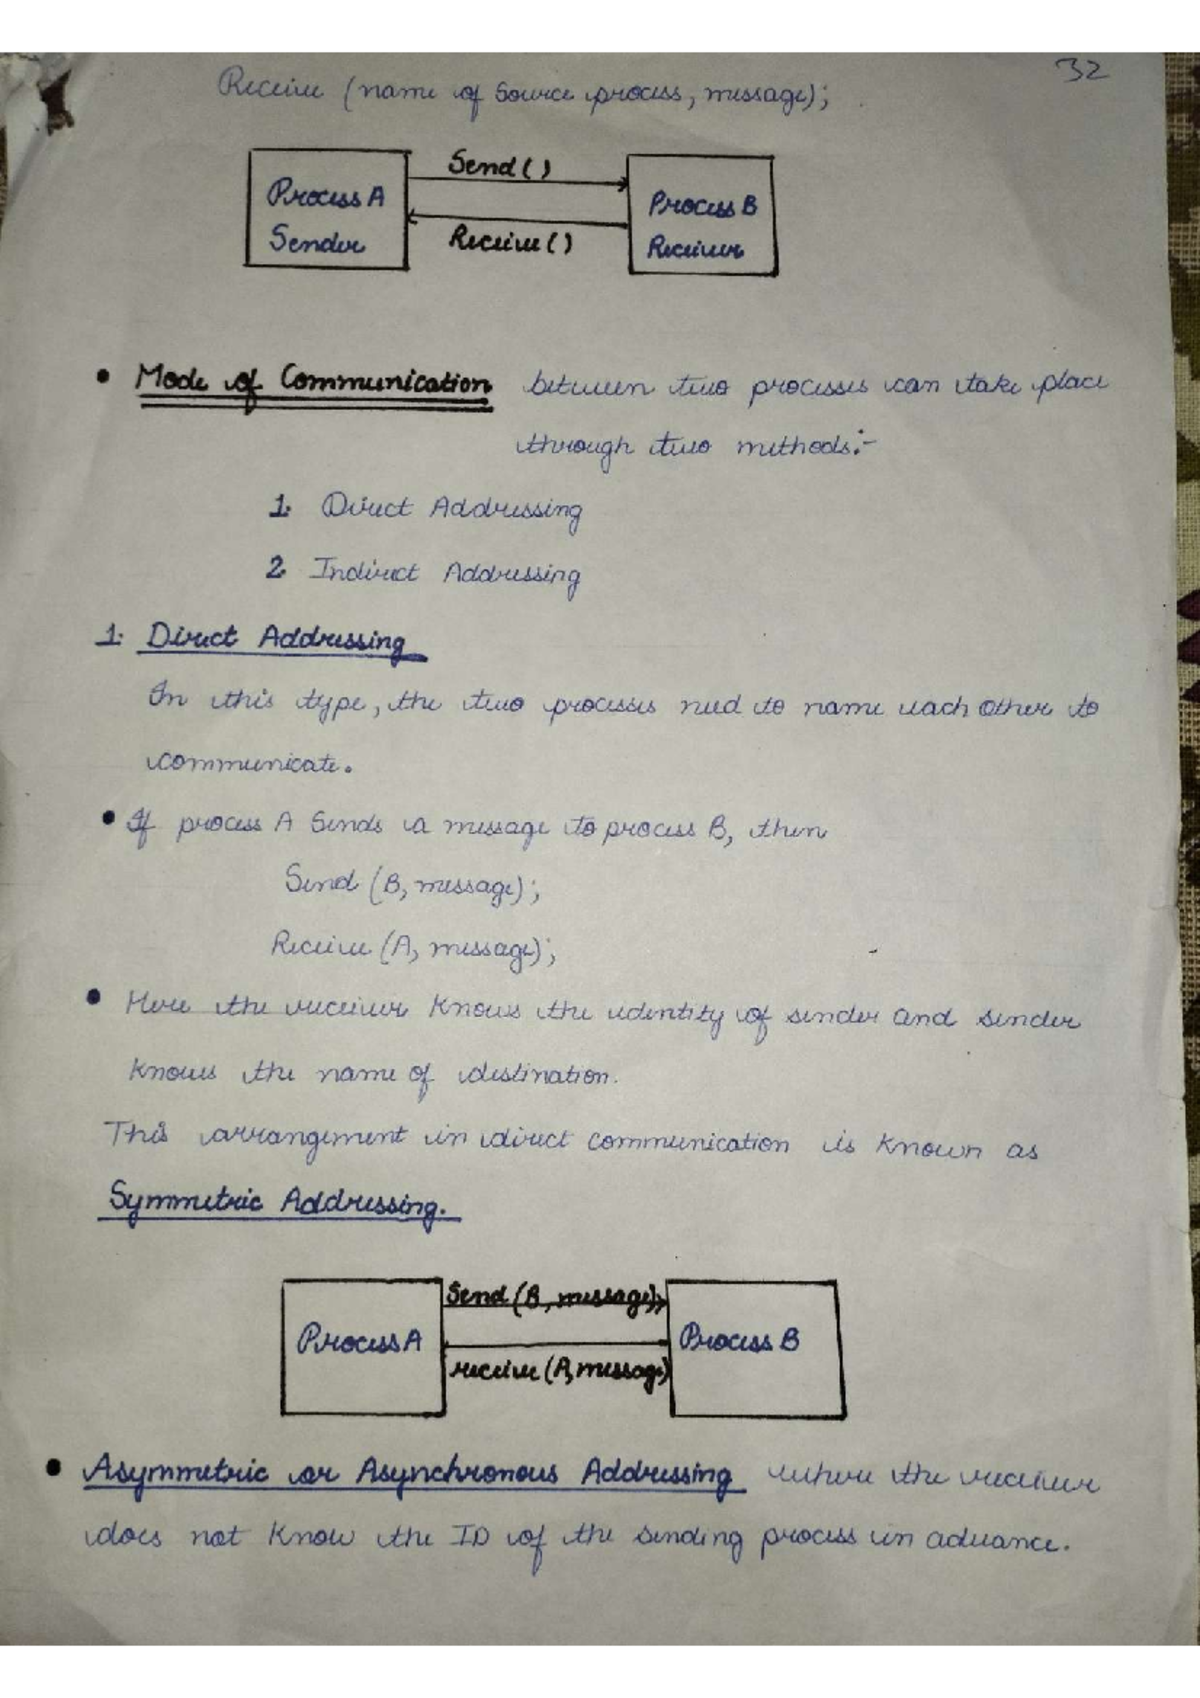 32
Receive (name of Source process, message);
Send ( )
Process A
Sender
Process B
Receiver
Receive ( )
• Mode of Communication between two processes can take place
through two methods:-
1. Direct Addressing
2. Indirect Addressing
1. Direct Addressing
In this type, the two processes need to name each other to
communicate.
• If process A Sends a message to process B, then
Send (B, message);
Receive (A, message);
• Here the receiver knows the identity of sender and sender
knows the name of destination.
This arrangement in direct communication is known as
Symmetric Addressing.
Send (B, message)
Process A
Process B
receive (A, message)
• Asymmetric or Asynchronous Addressing where the receiver
does not know the ID of the sending process in advance.